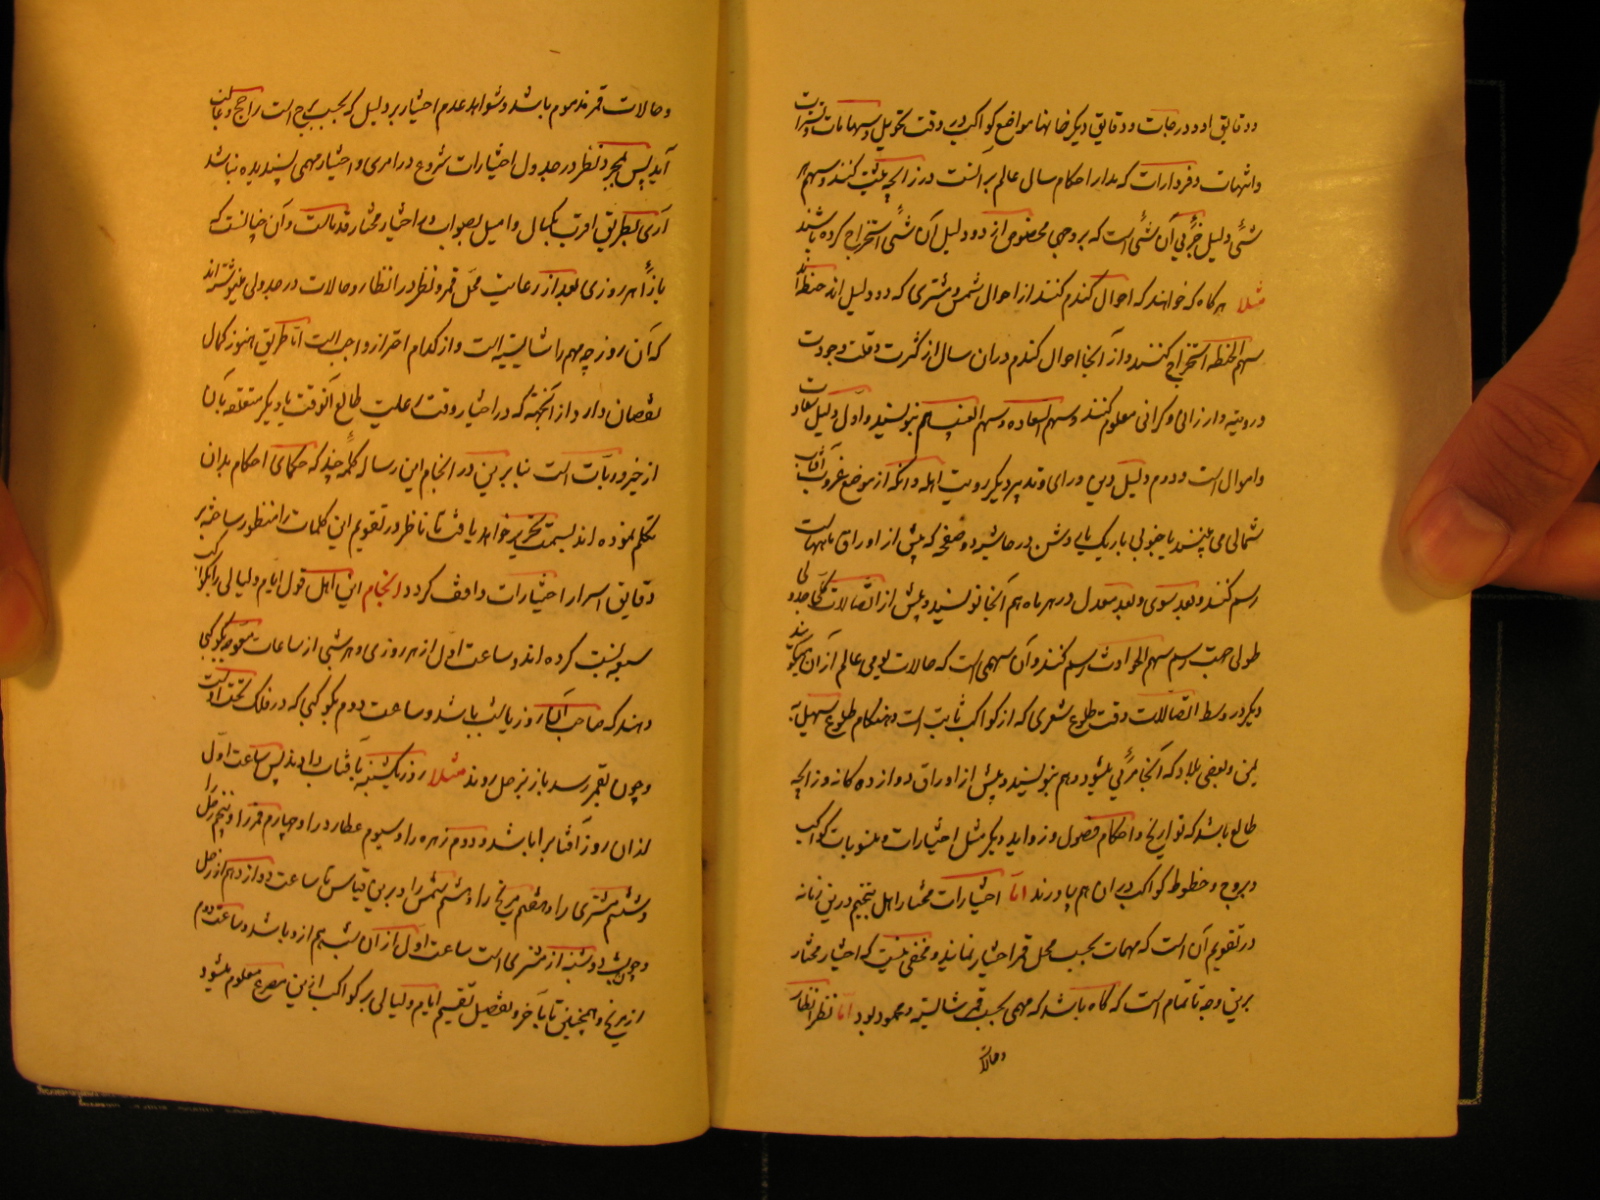 ودقایق او ودرجات ودقایق دیگر خانها ومواضع کواکب در وقت تحویل وسهامات وتسییرات
وانتهات وفردارات که مدار احکام سال عالم بر آنست در زایجه ثبت کنند وسهم هر
شئی دلیل جزئی آن شئی است که بر وجهی مخصوص از دو دلیل آن شئی استخراج کرده باشند
مثلا هرگاه که خواهند که احوال گندم کنند از احوال شمس ومشتری که دو دلیل اند حنطه را
سهم الحنطه استخراج کنند واز آنجا احوال گندم در آن سال از کثرت وقلت وجودت
وردیه وارزانی وگرانی معلوم کنند وسهم السعاده وسهم الغیب هم بنویسند واول دلیل سعادت
واموال است ودوم دلیل دین ورای وتدبیر دیگر رویت اهله وآنکه از موضع غروب آفتاب
شمالی می بینند یا جنوبی باریک یا روشن در حاشیه دو صفحه که پیش از اوراق
رسم کنند وبعد سوی وبعد معدل در هر ماه هم آنجا نویسند وپیش از اتصالات کلی جدولی
طولی جهت رسم سهم الحوادث رسم کنند وآن سهمی است که حالات یومی عالم از آن گویند
دیگر در وسط اتصالات وقت طلوع شعری که از کواکب ثابت است وهنگام طلوع سهیل به
یمن وبعضی بلاد که آنجا مرئی میشود وهم بنویسند وپیش از اوراق دوازده گانه زایجه
طالع باشد که تواریخ واحکام فصول وزواید دیگر مثل اختیارات ومنسوبات کواکب
وبروج وخطوط کواکب در آن هم بیاورند اما اختیارات مختار اهل تنجیم درین زمانه
در تقویم آن است که مهمات بحسب محل قمر اختیار نمایند ومخفی نیست که اختیار مختار
برین وجه ناتمام است که گاه باشد که مهمی بحسب قمر شایسته ومحمود بود اما نظر انظار
وحالات
وحالات قمر مذموم باشد وشواهد عدم اختیار بر دلیل که بحسب برج است راجح وغالب
آید پس بمجرد نظر در جدول اختیارات شروع در امری واختیار مهمی پسندیده نباشد
آری بطریق اقرب بکمال وامیل بصواب در اختیار مختار قدماست وآن چنانست که
بازاء هر روزی بعد از رعایت محل قمر ونظر در انظار وحالات در جدولی بنوشته اند
که آن روز چه مهم را شایسته است واز کدام احتراز واجب است اما طریق هنوز کمال
نقصان دارد از آنجهته که در اختیار وقت رعایت طالع آنوقت یا دیگر متعلقه بآن
از خیر وریات است بنا برین در انجام این رساله کلمه چند که حکمای احکام بدان
تکلم نموده اند بسمت تحریر خواهد یافت تا ناظر در تقویم این کلمات را منظور ساخته بر
دقایق اسرار اختیارات واقف گردد انجام این اهل قول ایام ولیالی را بکواکب
سبعه نسبت کرده اند وساعت اول از هر روزی وهر شبی از ساعات معوجه بکوکبی
دهند که صاحب آن روز یا شب باشد وساعت دوم بکوکبی که در فلک تحت اوست
وچون بقمر رسد باز بزحل روند مثلا روز یکشنبه بآفتاب دادند پس ساعت اول
از آن روز آفتاب را باشد ودوم زهره را وسیوم عطارد را وچهارم قمر را وپنجم زحل را
وششم مشتری را وهفتم مریخ را وهشتم شمس را وبرین قیاس تا ساعت دوازدهم از زحل
وچون شب دوشنبه از مشتری است ساعت اول از آن شب هم ازو باشد وساعت دوم
از مریخ وهمچنین تا بآخر وتفصیل تقسیم ایام ولیالی بر کواکب ازین مصرع معلوم میشود